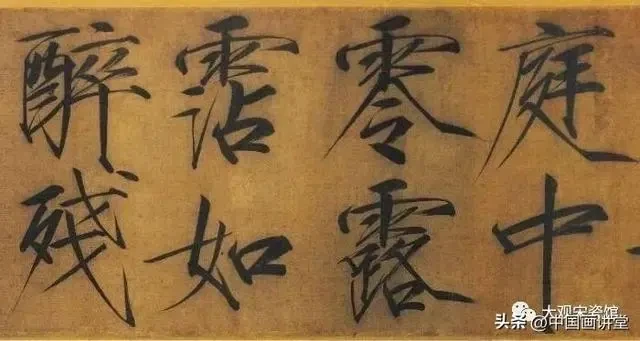 庭中
零露
霑如
醉残
大观宋瓷馆
头条 @中国画讲堂